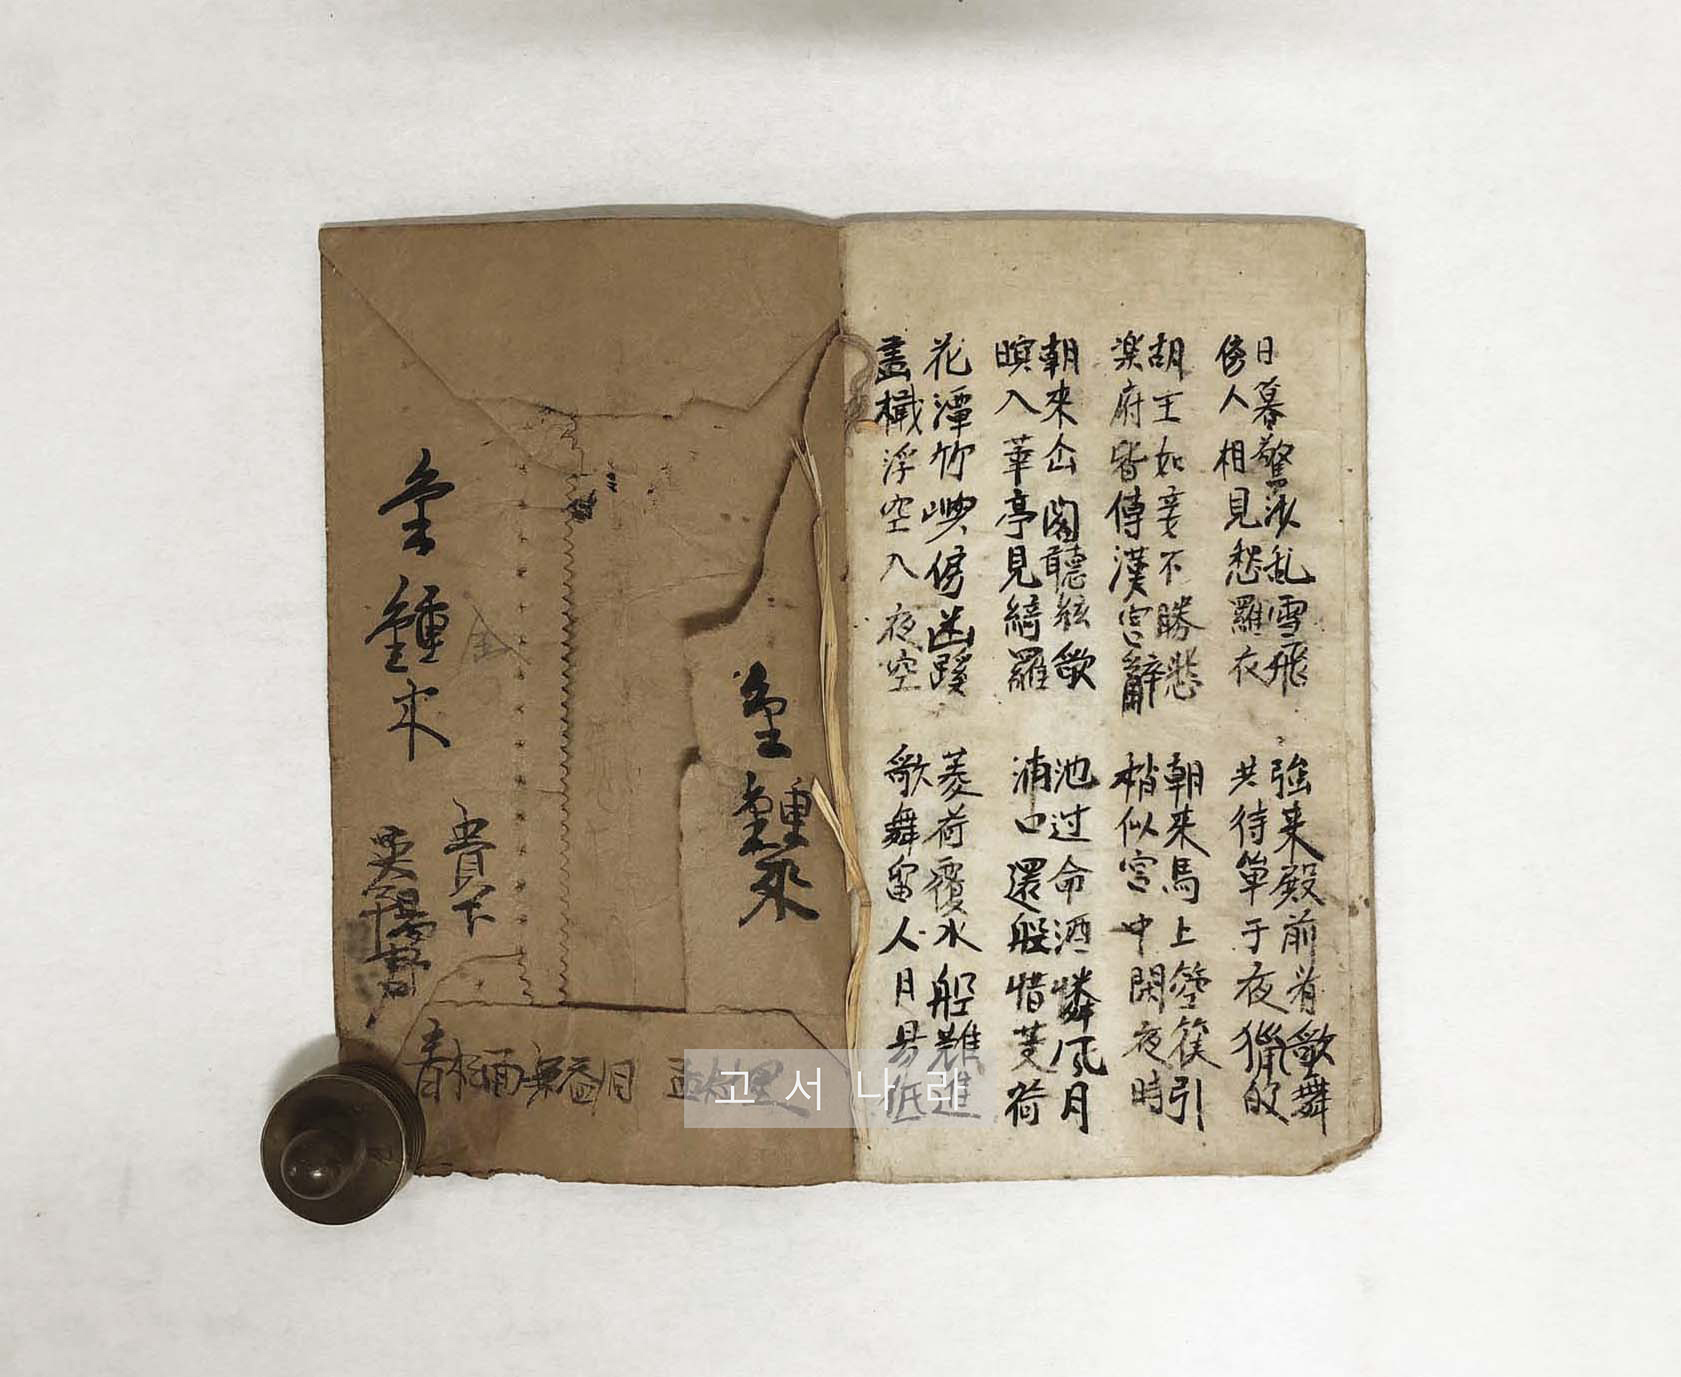 日暮驚沙乱雪飛 強来殿前看歌舞
傍人相見愁羅衣 共待単于夜猟的
胡王如妾不勝悲 朝来馬上箜篌引
楽府皆傳漢宮辭 梢似宮中閑夜時
朝來仚閣聽絃歌 池过命酒憐風月
暝入華亭見綺羅 浦口還般惜菱荷
花潭竹嶼傍幽蹊 菱荷覆水船難進
畫檝浮空入夜空 歌舞留人月易低
金鍾來
金鍾宋
貴下
고서나라